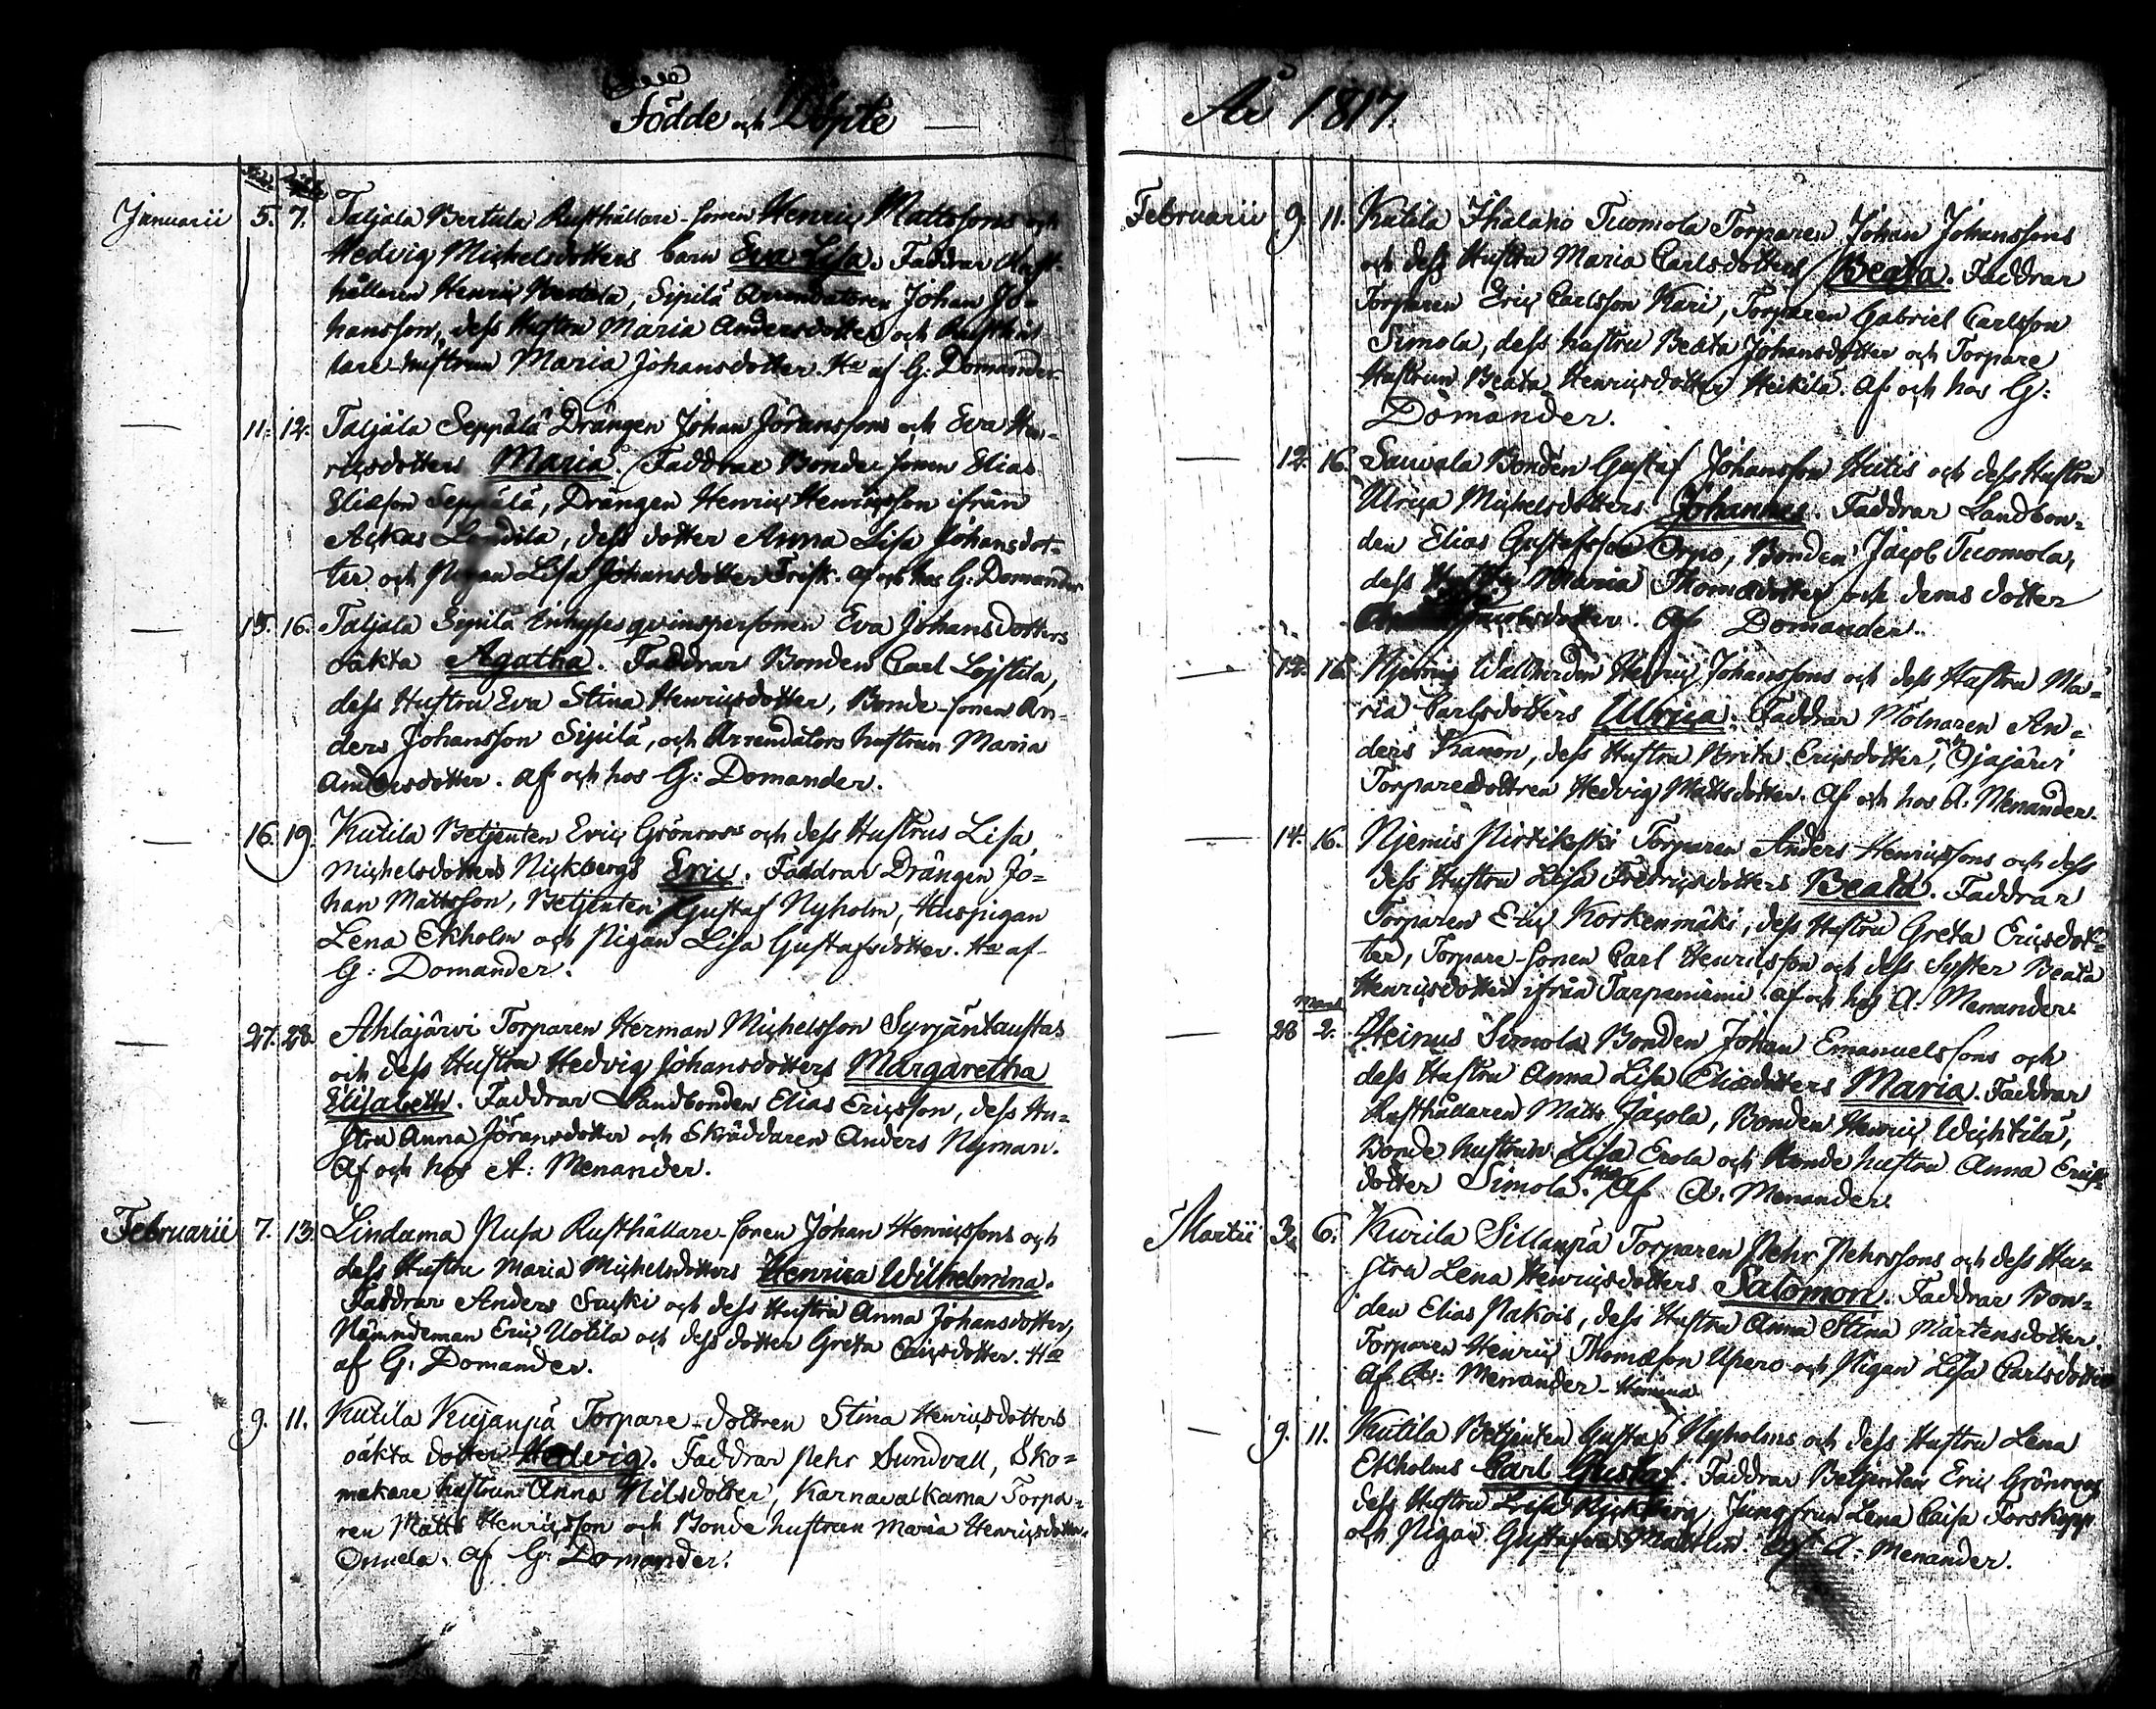 Födde och Döpte
Januarii 5. 7. Taljala Bertula Rusthållare-sonen Henric Mattssons och
Hedvig Michelsdotters barn Eva Lisa. Faddrar Rust-
hållaren Henric Bertula, Sipilä Arrendatoren Johan Jo-
hansson, dess Hustru Maria Andersdotter och Rusthål
lare-hustrun Maria Johansdotter. Ha af G: Domander
— 11. 12. Taljala Seppälä Drängen Johan Jöranssons och Eva Hen-
ricsdotters Maria. Faddrar Bonde sonen Elias
Eliæson Seppälä, Drängen Henric Henricsson ifrån
Ackas, dess dotter Anna Lisa Johansdot-
ter och Pigan Lisa Johansdotter Frisk. af och hos G: Domander
— 15. 16. Taljala Sipilä Inhyses qvinspersonen Eva Johansdotters
oäkta Agatha. Faddrar Bonden Carl Lojstila,
dess Hustru Eva Stina Henricsdotter, Bonde-sonen An-
ders Johansson Sipilä, och Arrendators hustrun Maria
Andersdotter. af och hos G: Domander.
— 16. 19. Kutila Betjenten Eric Grönroos och dess Hustrus Lisa
Michelsdotters Nickbergs Eric. Faddrar Drängen Jo-
han Mattsson, Betjenten Gustaf Nyholm, Huspigan
Lena Ekholm och Pigan Lisa Gustafsdotter. Ha af
G: Domander.
— 27. 28. Ahlajärvi Torparen Herman Michelsson Syvjäntaustas
och dess Hustru Hedvig Johansdotters Margaretha
Elisabeth. Faddrar Landbonden Elias Ericsson, dess Hu-
stru Anna Jöransdotter och Skräddaren Anders Nyman.
Af och hos A: Menander.
Februarii 7. 13. Lindama Pusa Rusthållare-sonen Johan Henricssons och
dess Hustru Maria Michelsdotters Henrica Wilhelmina.
Faddrar Anders Suski och dess Hustru Anna Johansdotter,
Nämndeman Eric Uotila och dess dotter Greta Ericsdotter. Ha
af G: Domander.
— 9. 11. Kutila Kujanpä Torpare-dottren Stina Henricsdotters
oäkta dotter Hedvig. Faddrar Pehr Sundvall, Sko-
makare hustrun Anna Nilsdotter, Karnavalkama Torpa-
ren Matts Henricsson och Bonde hustrun Maria Henricsdotter
Onnela. af G: Domander.
År 1817.
Februarii 9. 11. Kutila Ihalaho Tuomola Torparen Johan Johanssons
och dess Hustru Maria Carlsdotters Beata. Faddrar
Torparen Eric Carlsson Kari, Torparen Gabriel Carlsson
Simola, dess hustru Beata Johansdotter och Torpare
Hustrun Beata Henricsdotter Heikilä. af och hos G:
Domander.
— 12. 16. Sauvala Bonden Gustaf Johansson Hutis och dess Hustru
Ulrica Michelsdotters Johannes. Faddrar Landbon-
den Elias Gustafsson Orpo, Bonden Jacob Tuomola,
dess Hustru Maria Thomædotter och deras dotter
Jacobsdotter. Af Domander.
— 12. 16. Njemis Henric Johanssons och dess Hustru Ma-
ria Carlsdotters Ulrica. Faddrar Mölnaren An-
ders Kanon, dess Hustru Brita Ericsdotter, och Ojajärvi
Torparedottren Hedvig Mattsdotter. Af och hos A: Menander.
— 14. 16. Njemis Pirtikoski Torparen Anders Henricssons och dess
dess Hustru Lisa Fredricsdotters Beata. Faddrar
Torparen Eric Korkenmäki, dess Hustru Greta Ericsdot-
ter, Torpare-sonen Carl Henricsson och dess Syster Beata
Henricsdotter ifrån Tarpaniemi. af och hos A: Menander.
Mart.
— 28 2. Heinus Simola Bonden Johan Emanuelssons och
dess Hustru Anna Lisa Eliædotters Maria. Faddrar
Rusthållaren Matts Jacola, Bonden Henric Wichtilä,
Bonde hustrun Lisa Erola och Bonde hustru Anna Erics-
dotter Simola. Ha Af A: Menander.
Martii 3. 6. Kurila Sillanpä Torparen Pehr Pehrssons och dess Hu-
stru Lena Henricsdotters Salomon. Faddrar Bon-
den Elias Pakois, dess Hustru Anna Stina Mårtensdotter
Torparen Henric Thomæson Upero och Pigan Lisa Carlsdotter
Af A: Menander - Hemma
— 9. 11. Kutila Betjenten Gustaf Nyholms och dess Hustru Lena
Ekholms Carl Gustaf. Faddrar Betjenten Eric Grönroos
dess Hustru Lisa Nickberg, Jungfrun Lena Caisa Forskopp
och Pigan Gustafva Mattlin. A: Menander.